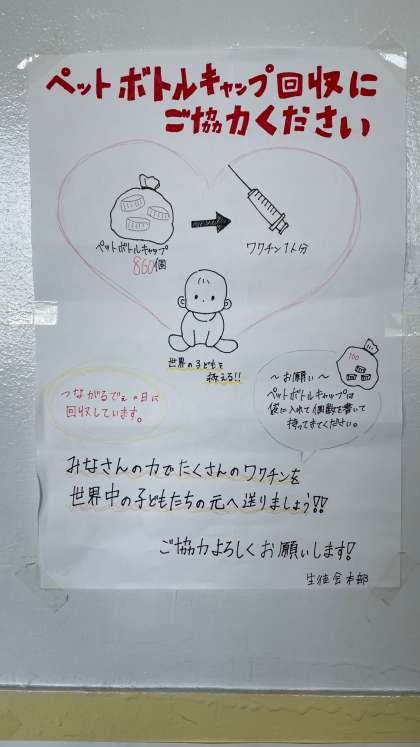 ペットボトルキャップ回収に
ご協力ください
ペットボトルキャップ
860個
ワクチン1人分
世界の子どもを
救える!!
つながるでぇの日に
回収しています。
100
～お願い～
ペットボトルキャップは
袋に入れて個数を書いて
持ってきてください。
みなさんの力でたくさんのワクチンを
世界中の子どもたちの元へ送りましょう!!
ご協力よろしくお願いします!
生徒会本部